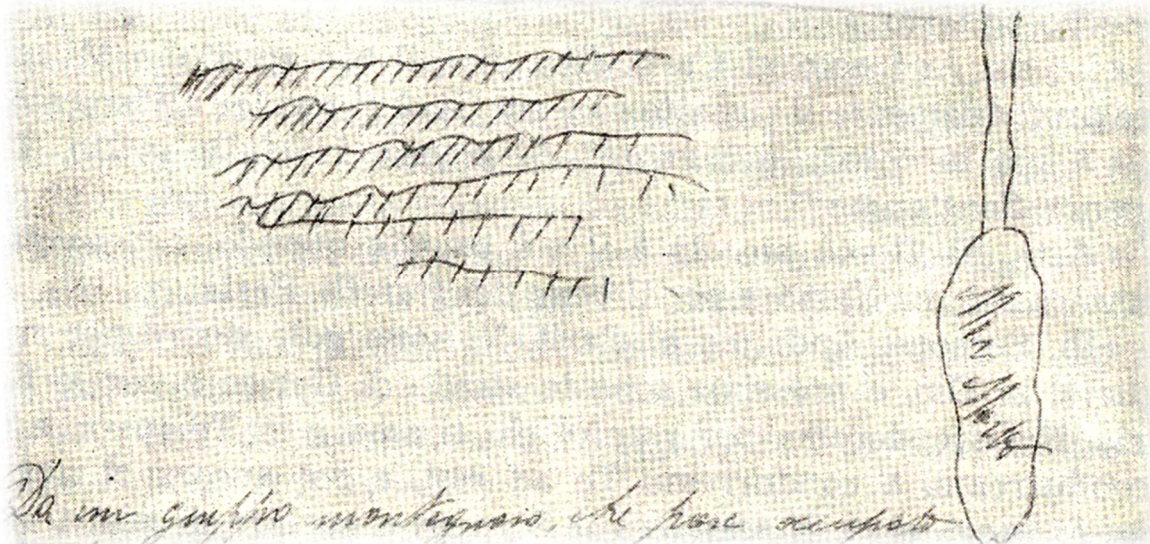 Da un gruppo montagnoso, che pare occupato